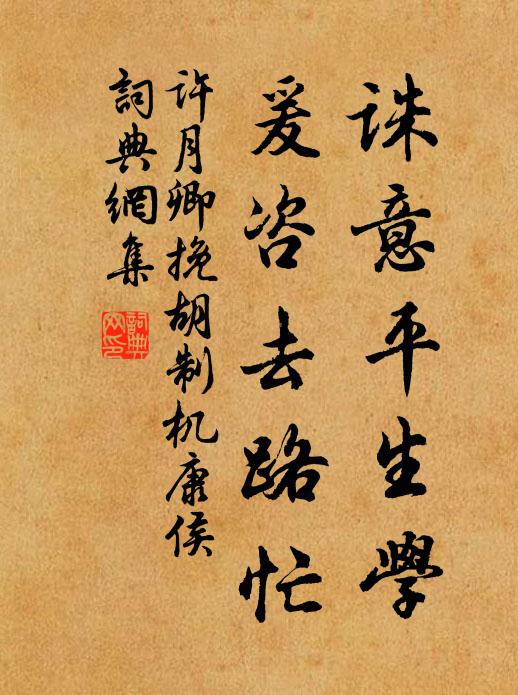 誅意平生學
爰咨去路忙
許月卿挽胡制机康侯
詞典網集
詞典網印